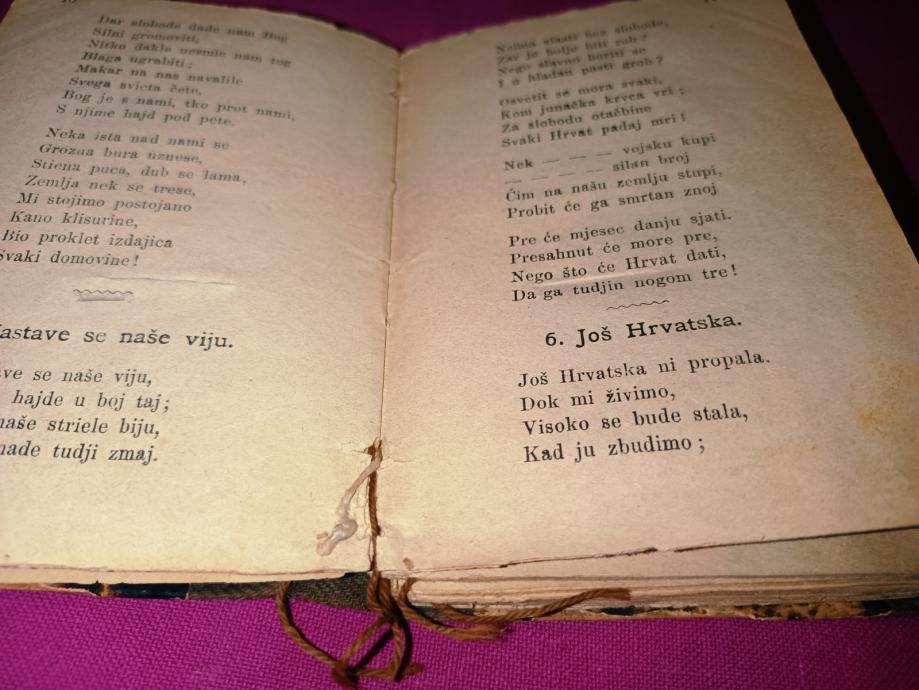 Dar slobode dade nam Bog
Silni gromoviti,
Nitko dakle nesmie nam tog
Blaga ugrabiti;
Makar na nas navalile
Svega svieta čete,
Bog je s nami, tko prot nami,
S njime hajd pod pete.
Neka ista nad nami se
Grozna bura uznese,
Stiena puca, dub se lama,
Zemlja nek se trese,
Mi stojimo postojano
Kano klisurine,
Bio proklet izdajica
Svaki domovine!
astave se naše viju.
ve se naše viju,
hajde u boj taj;
naše striele biju,
nade tudji zmaj.
Neima slasti bez slobode,
Zar je bolje biti rob?
Nego slavno boriti se
I u hladan pasti grob?
Osvetit se mora svaki,
Kom junačka krvca vri;
Za slobodu otačbine
Svaki Hrvat padaj mri!
Nek — — — vojsku kupi
— — — — silan broj
Čim na našu zemlju stupi,
Probit će ga smrtan znoj
Pre će mjesec danju sjati.
Presahnut će more pre,
Nego što će Hrvat dati,
Da ga tudjin nogom tre!
6. Još Hrvatska.
Još Hrvatska ni propala.
Dok mi živimo,
Visoko se bude stala,
Kad ju zbudimo;